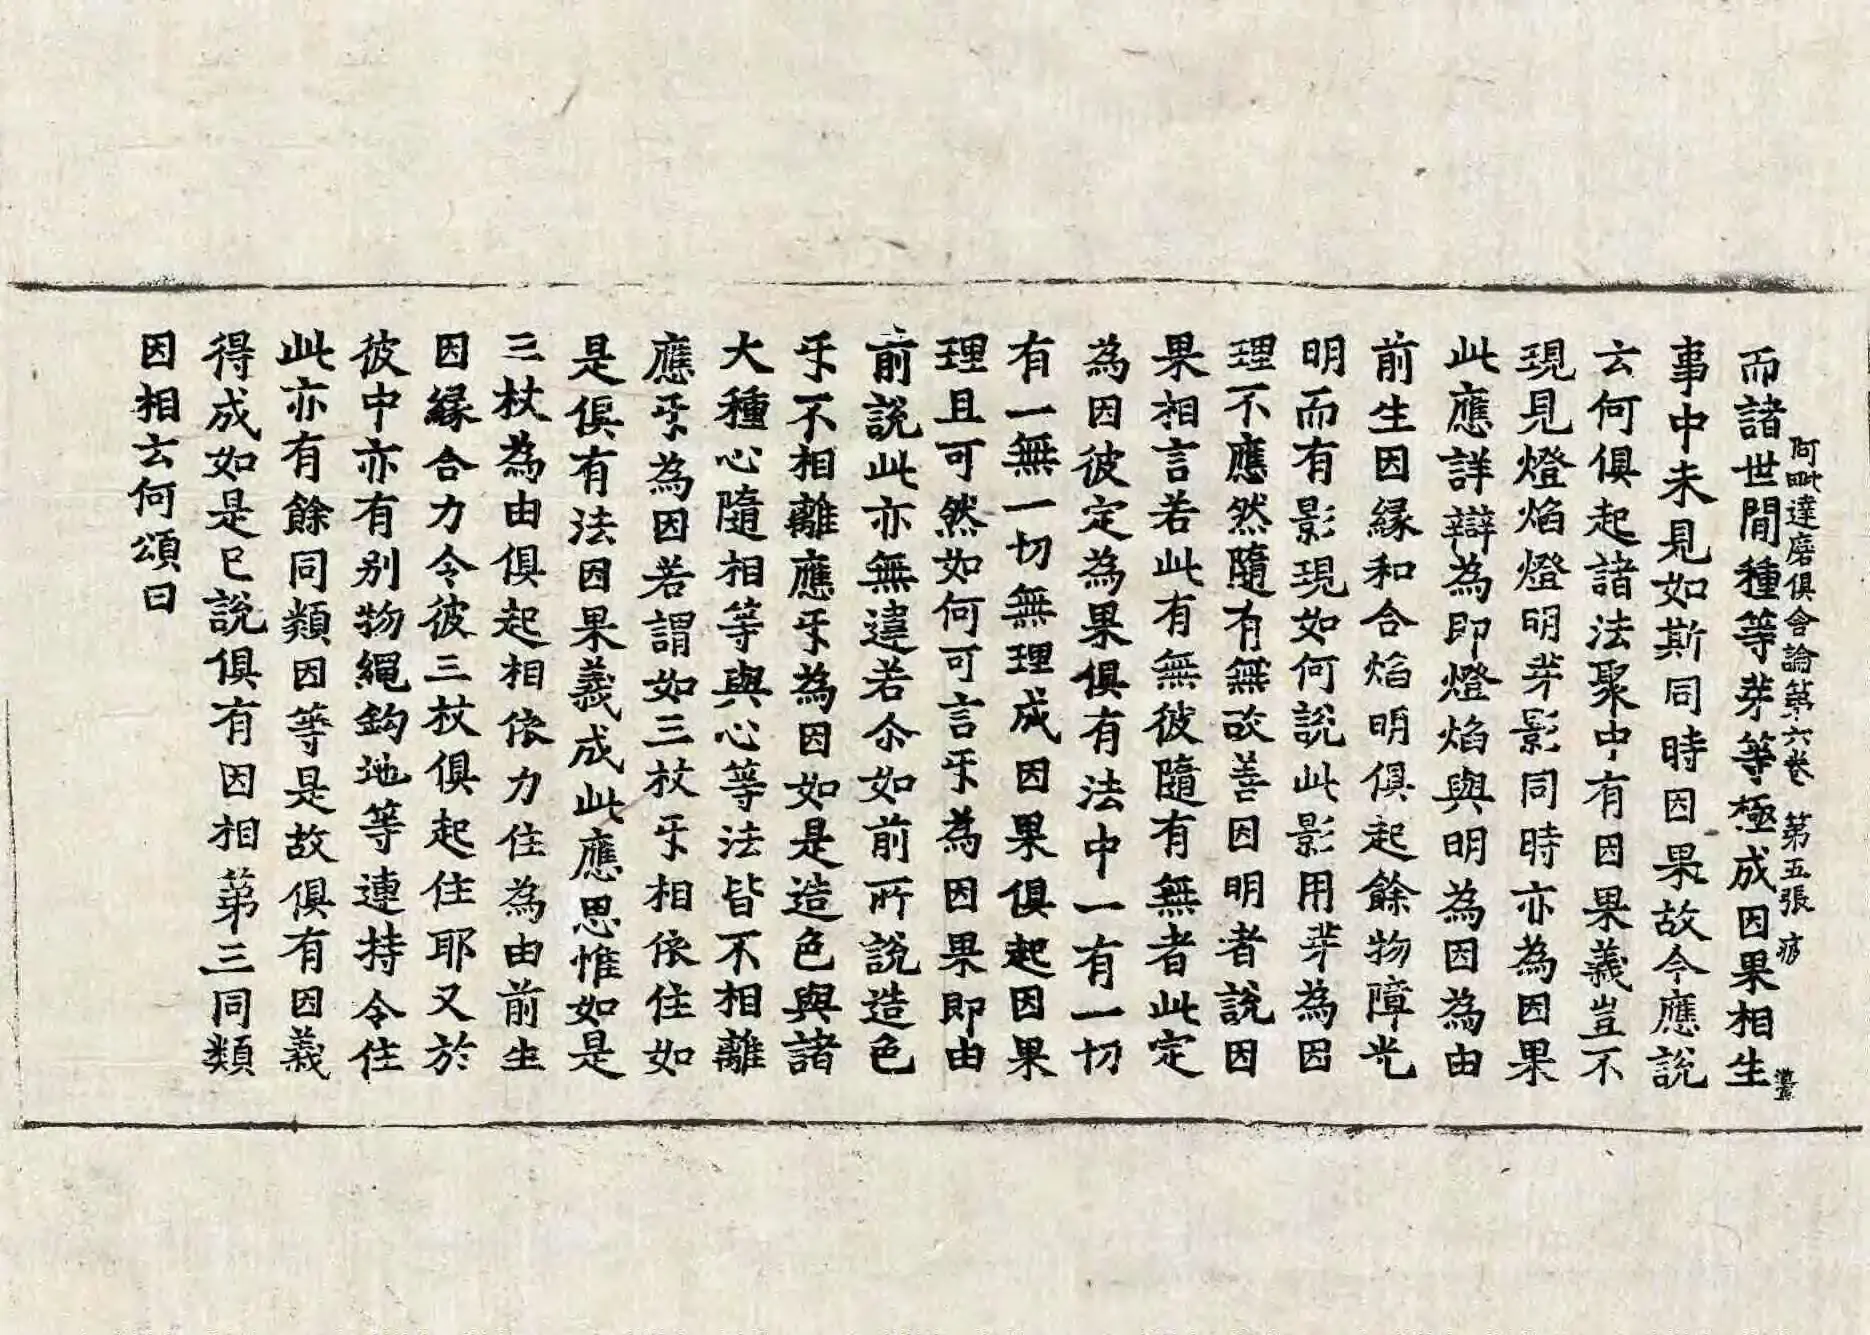 阿毗達磨俱舍論第六卷　第五張　疲
而諸世間種等芽等極成因果相生
事中未見如斯同時因果故今應說
云何俱起諸法聚中有因果義豈不
現見燈焰燈明芽影同時亦為因果
此應詳辯為即燈焰與明為因為由
前生因緣和合焰明俱起餘物障光
明而有影現如何說此影用芽為因
理不應然隨有無故善因明者說因
果相言若此有無彼隨有無者此定
為因彼定為果俱有法中一有一切
有一無一切無理成因果俱起因果
理且可然如何可言乎為因果即由
前說此亦無違若尒如前所說造色
乎不相離應乎為因如是造色與諸
大種心隨相等與心等法皆不相離
應乎為因若謂如三杖乎相依住如
是俱有法因果義成此應思惟如是
三杖為由俱起相依力住為由前生
因緣合力令彼三杖俱起住耶又於
彼中亦有別物繩鈎地等連持令住
此亦有餘同類因等是故俱有因義
得成如是已說俱有因相第三同類
因相云何頌曰